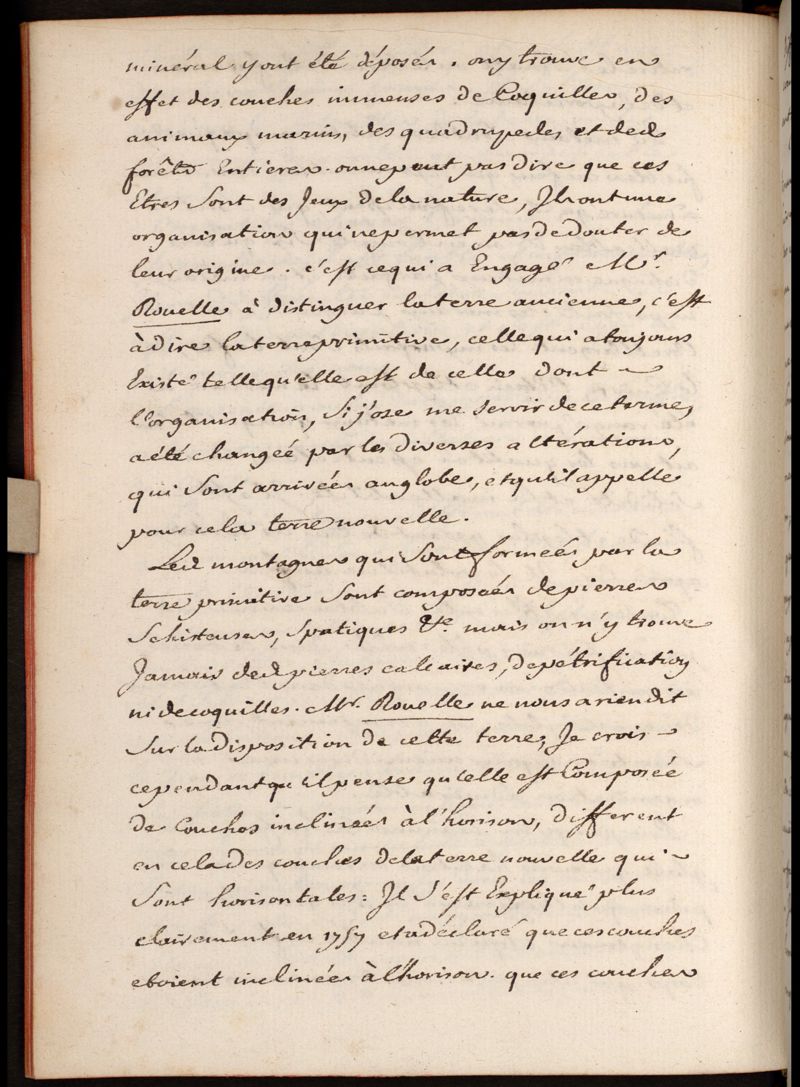 minéral y ont été déposés. on y trouve en
effet des couches immenses de Coquilles, des
animaux marins, des quadrupedes et des
forêts Entieres. on ne peut pas dire que ces
Etres Sont des Jeux de la nature, Ils ont une
organisation qui ne permet pas de douter de
leur origine. c'est ce qui a Engagé Mr.
Rouelle à distinguer la terre ancienne, c'est
à dire la terre primitive, celle qui a toujours
Existé telle qu'elle est de celle dont ~
l'organisation, Si j'ose me servir de ce terme,
a été changeé par les diverses altérations,
qui Sont arrivées au globe, et qu'il appelle
pour cela terre nouvelle.
Les montagnes qui Sont formeés par la
terre primitive Sont composées de pierres
Schisteuses, Spatiques &c. mais on n'y trouve
Jamais des pierres calcaires, de pétrification
ni de coquilles. Mr. Rouelle ne nous a rien dit
Sur la disposition de cette terre, Je crois ~
cependant qu'il pense qu'elle est Composée
de Couches inclinées à l'horison, different
en cela des couches de la terre nouvelle qui ~
Sont horisontales: Il S'est Expliqué plus
clairement en 1757 et a déclaré que ces couches
etoient inclinées à l'horison. que ces couches